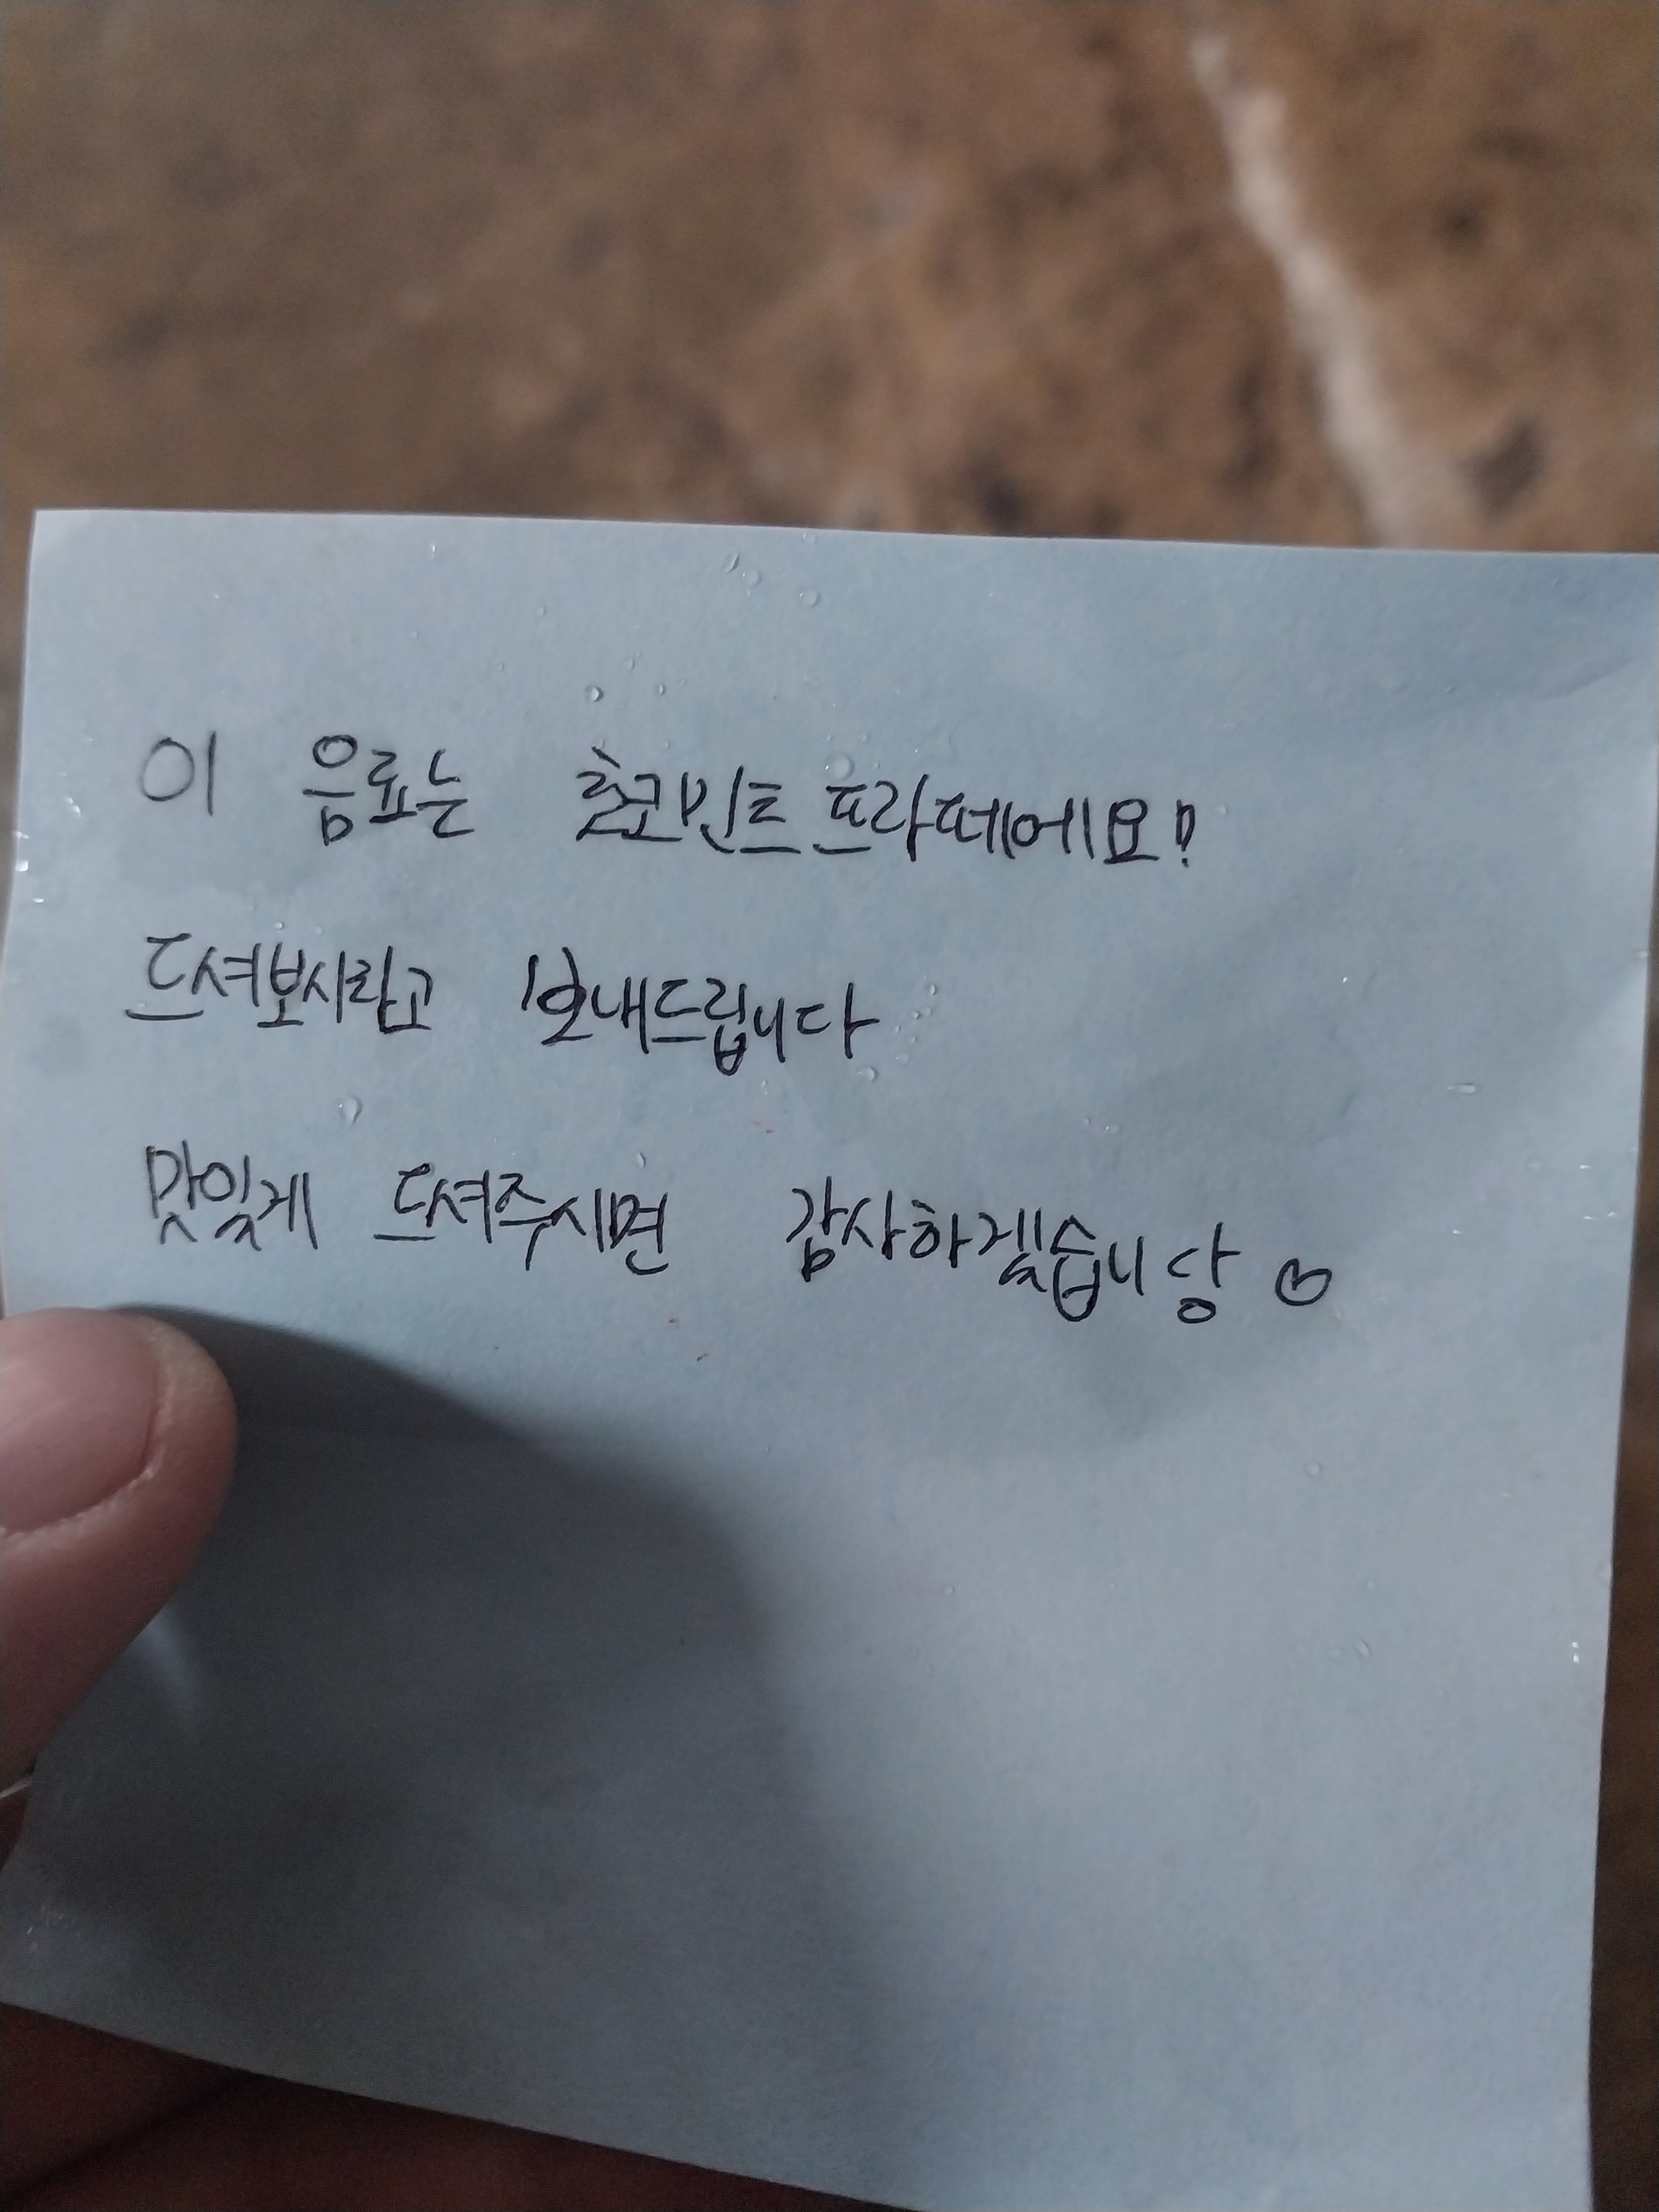 이 음료는 초코민트프라떼에요!
드셔보시라고 보내드립니다
맛있게 드셔주시면 감사하겠습니당 ♡